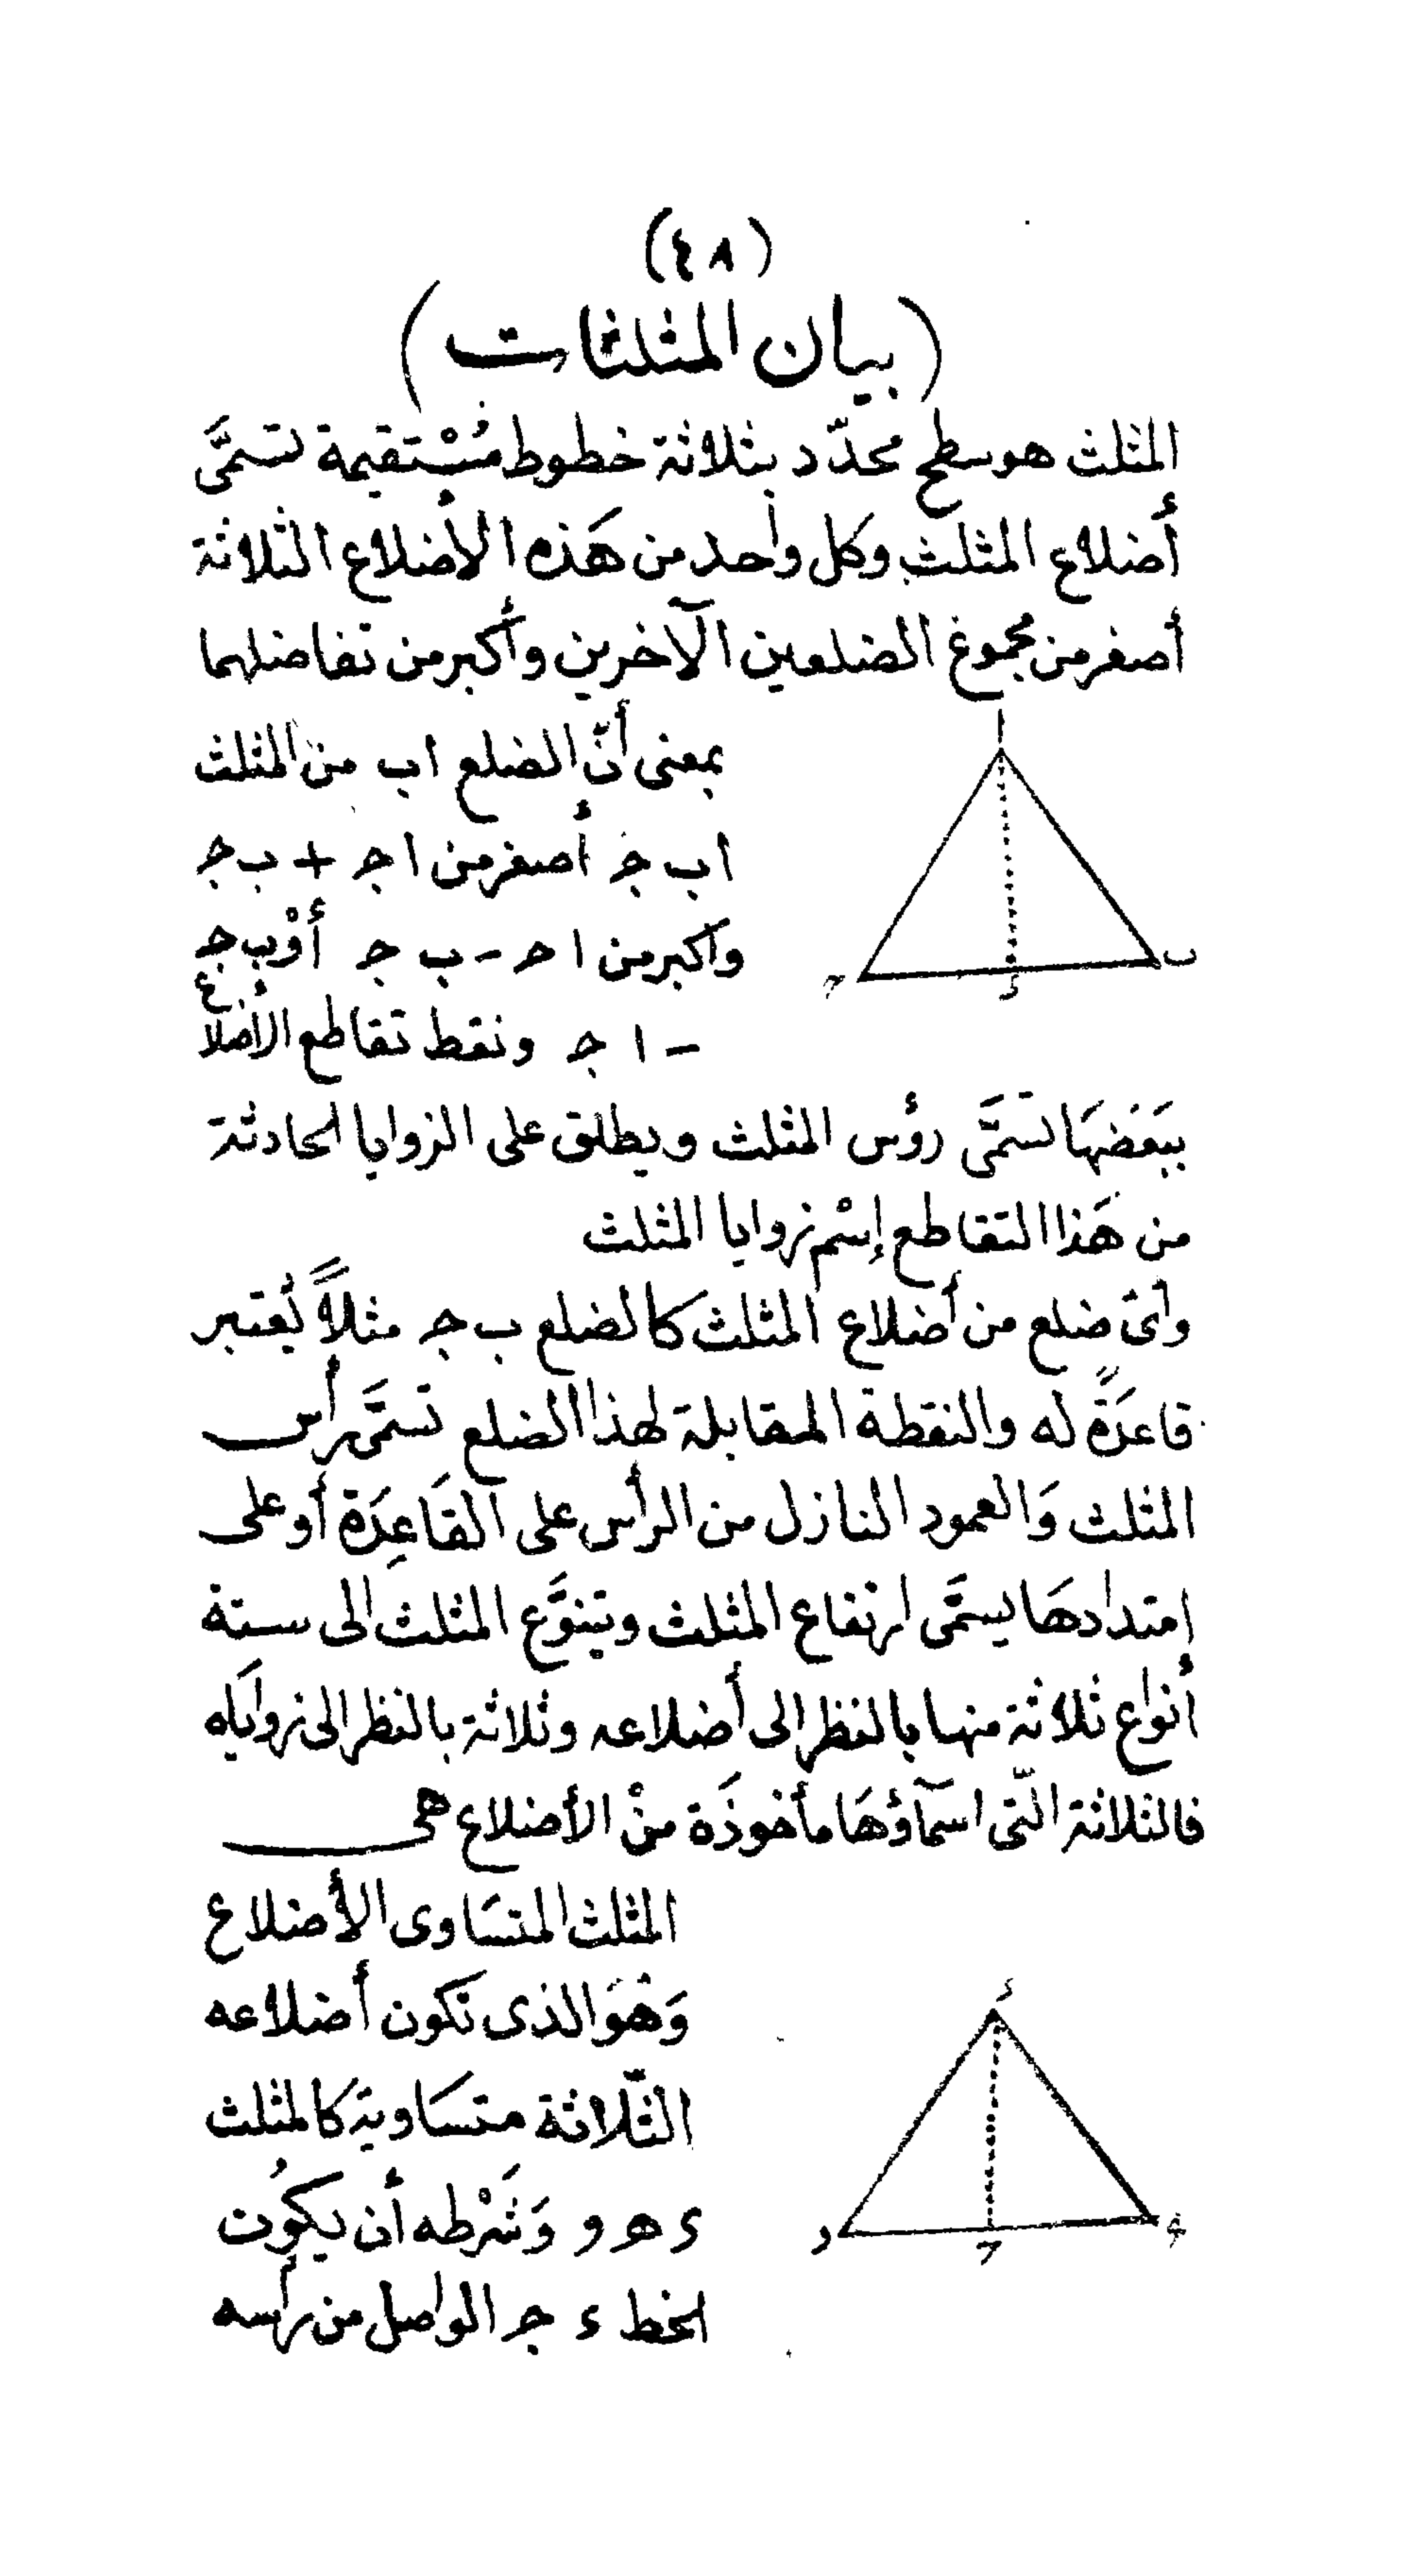 (٤٨)
(بيان المثلثات)
المثلث هو سطح محدّد بثلاثة خطوط مُسْتقيمة تسمَّى
أضلاع المثلث وكل واحد من هَذه الأضلاع الثلاثة
أصغر من مجموع الضلعين الآخرين وأكبر من تفاضلهما
بمعنى أنّ الضلع اب من المثلث
اب ج أصغر من ا ج + ب ج
وأكبر من ا ح - ب ج أوْ ب ج
- ا ج ونقط تقاطع الأضلاع
ا
ب
ء
ح
ببَعَضهَا تسَمَّى رؤس المثلث ويطلق على الزوايا الحادثة
من هَذا التقاطع إسْم زوايا المثلث
وأى ضلع من أضلاع المثلث كالضلع ب ج مثلاً يُعتبر
قاعدَةً له والنقطة المقابلة لهذا الضلع تسَمَّى رأس
المثلث وَالعمود النازل من الرأس على القَاعِدَة أو على
إمتدادهَا يسمَّى ارتفاع المثلث ويتنوَّع المثلث الى ستة
أنواع ثلاثة منها بالنظر الى أضلاعه وثلاثة بالنظر الى زوايَاه
فالثلاثة الّتى اسمآؤهَا مأخوذَة منْ الأضلاع هى
المثلث المتسَاوى الأضلاع
وَهوَ الذى تكون أضلاعه
الثّلاثة متسَاوية كالمثلث
ء ه و وَشَرْطه أن يكوُن
الخط ء ج الواصل من رأسه
ء
ه
ج
و